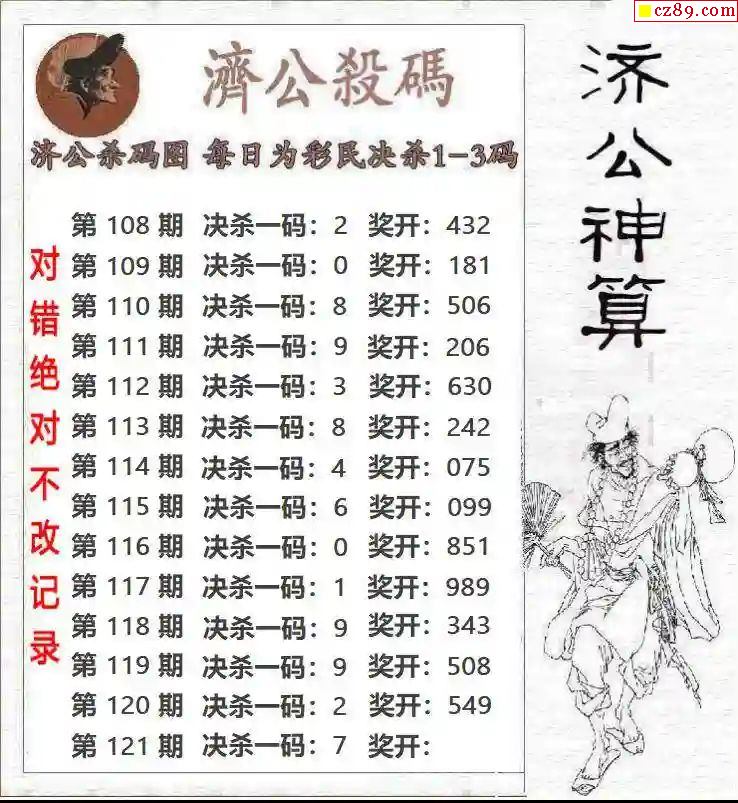 cz89.com
濟公殺碼
济公杀码图 每日为彩民决杀1-3码
第 108 期 决杀一码：2 奖开：432
第 109 期 决杀一码：0 奖开：181
第 110 期 决杀一码：8 奖开：506
第 111 期 决杀一码：9 奖开：206
第 112 期 决杀一码：3 奖开：630
第 113 期 决杀一码：8 奖开：242
第 114 期 决杀一码：4 奖开：075
第 115 期 决杀一码：6 奖开：099
第 116 期 决杀一码：0 奖开：851
第 117 期 决杀一码：1 奖开：989
第 118 期 决杀一码：9 奖开：343
第 119 期 决杀一码：9 奖开：508
第 120 期 决杀一码：2 奖开：549
第 121 期 决杀一码：7 奖开：
对错绝对不改记录
济公神算